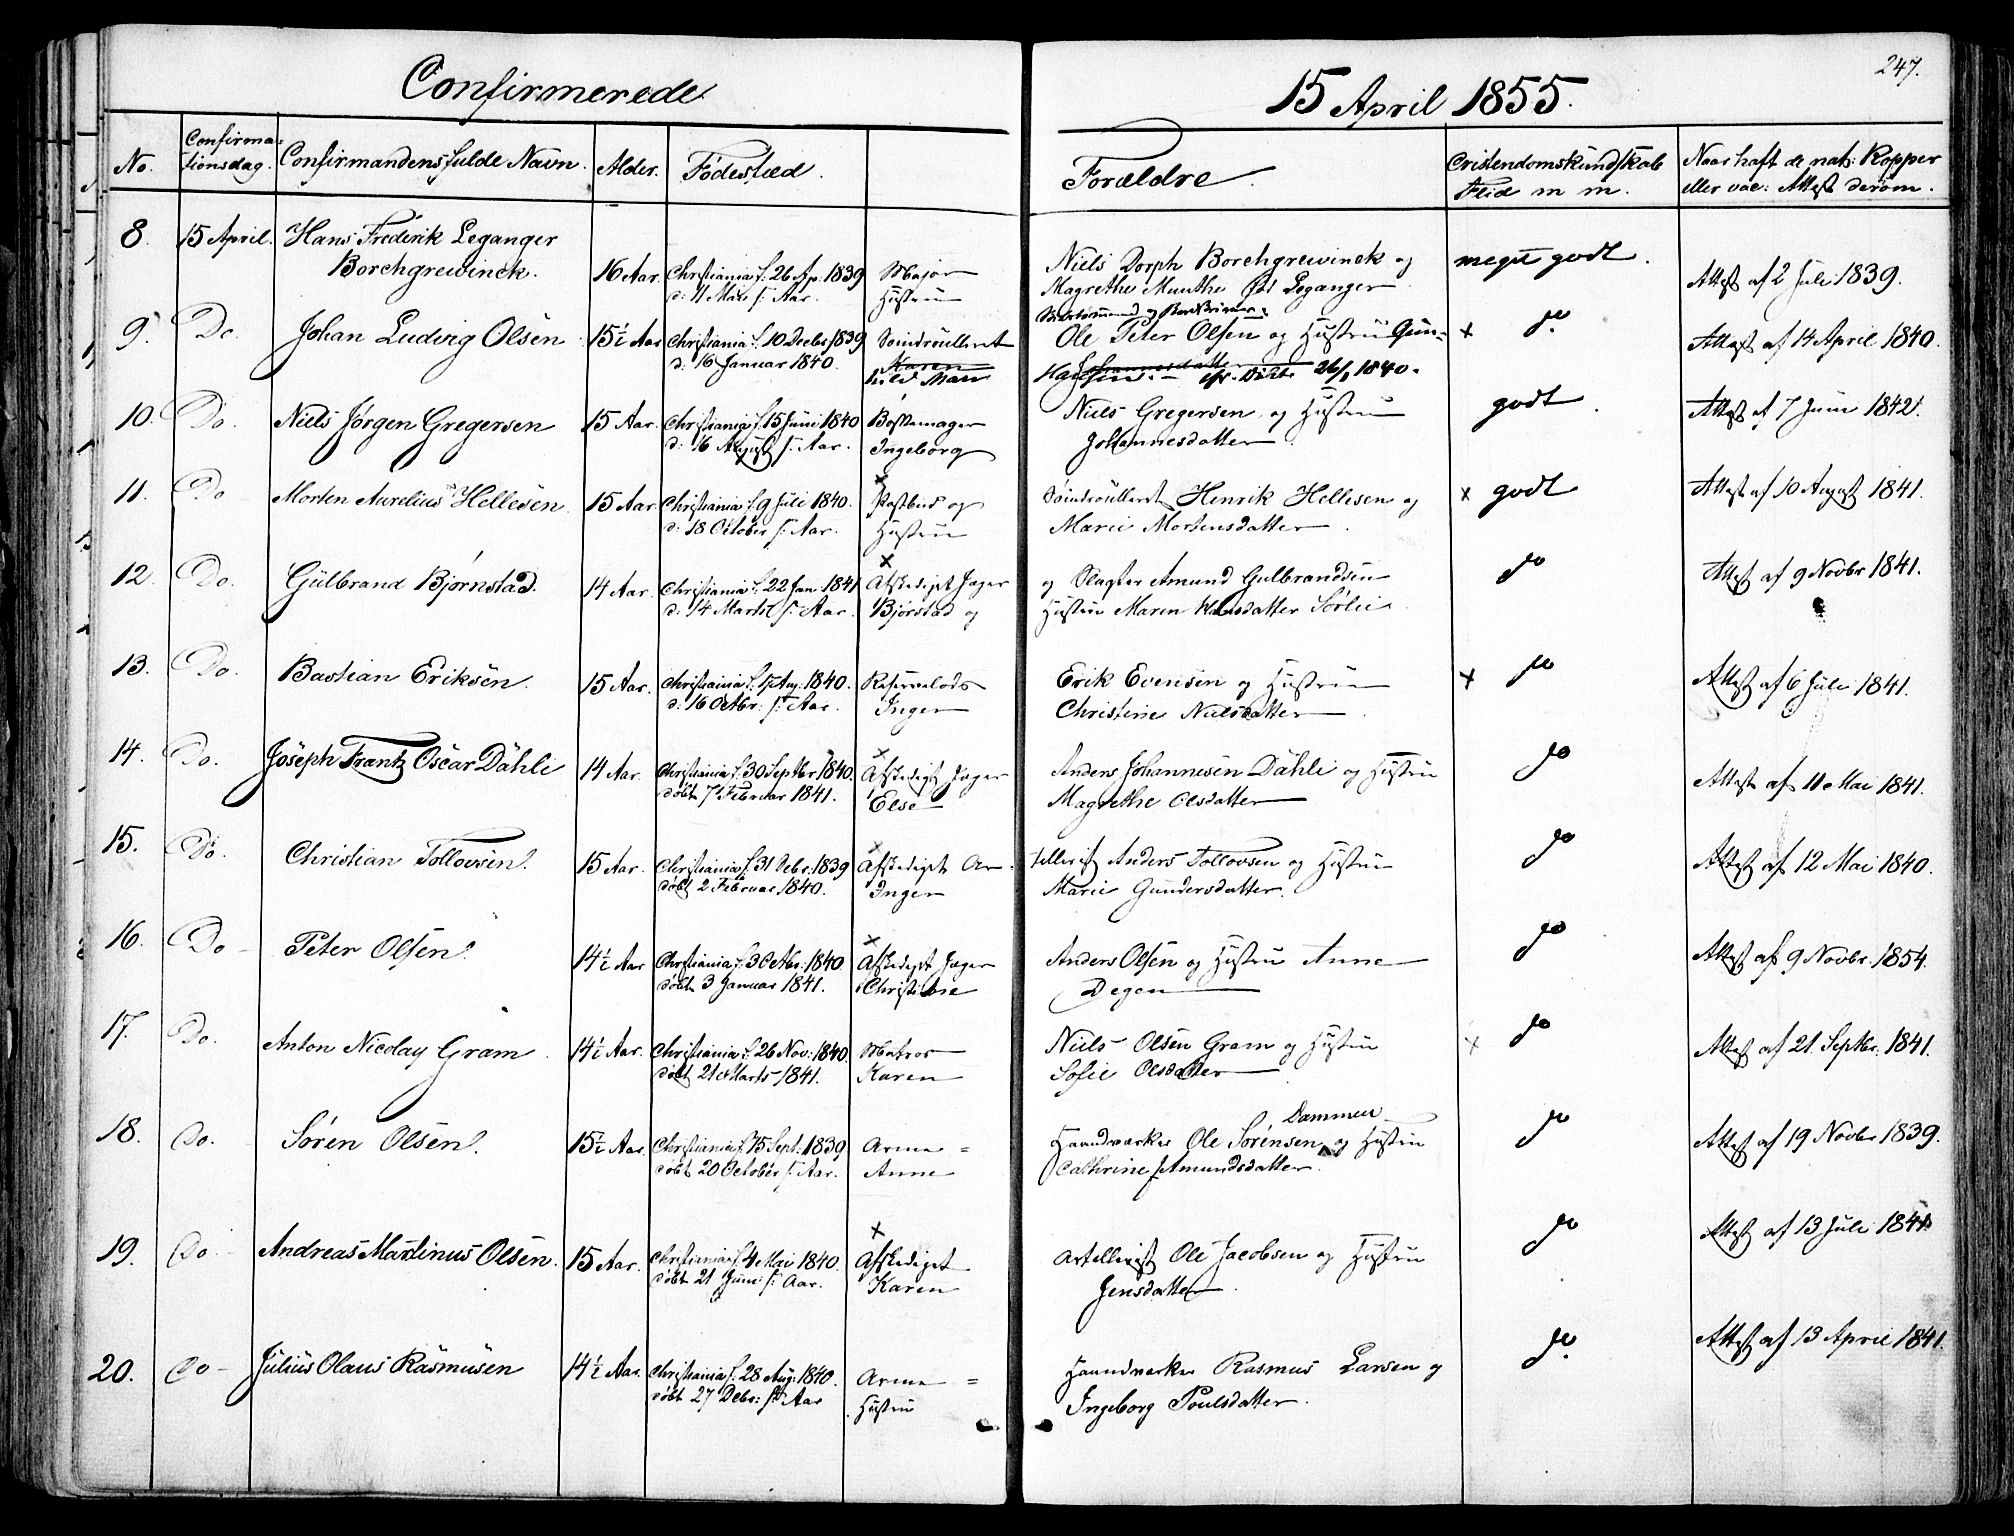 247.
Confirmerede 15 April 1855.
No. Confirma-tionsdag. Confirmandens fulde Navn. Alder. Fødested. Forældre. Cristendomskundskab Flid m m. Naar haft de nat: Kopper eller vac: Attest derom.
8. 15 April. Hans Frederik Leganger
Borchgrewinck. 16 Aar. Christiania f: 26 Ap. 1839 Major Niels Dorph Borchgrewinck og meget godt. Attest af 2 Juli 1839.
Hustru Magrethe Munthe Leganger
9. Do. Johan Ludvig Olsen 15½ Aar Christiania f. 10 Decbr 1839 Ole Peter Olsen og Hustru Gun- x do Attest af 14 April 1840.
d: 16 Januar 1840. Karen Johannesdatter
hild Marie Hansen. 26/1 1840.
10. Do. Niels Jørgen Gregersen 15 Aar. Christiania f. 15 Juni 1840 Bøssemager Niels Gregersen og Hustru godt. Attest af 7 Juni 1842.
d: 16 August s: Aar. Ingeborg Johannesdatter
11. Do Morten Aurelius Hellesen 15 Aar Christiania f. 9 Juli 1840. x Postbud og Henrik Hellesen og x godt Attest af 10 August 1841.
d: 18 October s: Aar. Hustru Marie Mortensdatter.
12. Do. Gulbrand Bjørnstad. 14 Aar. Christiania f. 22 Jan. 1841 x Afskediget Jæger og Slagter Amund Gulbrandsen do Attest af 9 Novbr 1841.
d: 14 Marts s: Aar. Bjørstad og Hustru Maren Hansdatter Sørlie.
13. Do. Bastian Eriksen. 15 Aar. Christiania f. 17 Aug. 1840. Erik Evensen og Hustru x do Attest af 6 Juli 1841.
d: 16 Octbr: s: Aar. Inger Christine Nielsdatter.
14. Do. Joseph Frantz Oscar Dahli 14 Aar. Christiania f. 30 Septbr 1840. x Afskediget Jæger Anders Johannesen Dahli og Hustru do Attest af 11 Mai 1841.
døbt 7 Februar 1841. Else Magrethe Olsdatter
15. Do. Christian Tollovsen. 15 Aar. Christiania f. 31 Decbr. 1839 x Afskediget Ar- tellerist Anders Tollovsen og Hustru do Attest af 12 Mai 1840.
døbt 2 Februar 1840. Inger Marie Gundersdatter.
16. Do Peter Olsen. 14½ Aar Christiania f. 3 Octbr: 1840 x Afskediget Jæger Anders Olsen og Hustru Anne do Attest af 9 Novbr. 1854.
døbt 3 Januar 1841. Christine Degen
17. Do. Anton Nicolay Gram. 14½ Aar. Christiania f. 26 Nov: 1840. Matros Niels Olsen Gram og Hustru x do Attest af 21 Septbr. 1841.
døbt 21 Marts 1841. Karen Sofie Olsdatter
18. Do. Søren Olsen. 15½ Aar. Christiania f. 15 Sept: 1839 Arme= Dammen Haandværker Ole Sørensen og Hustru do Attest af 19 Novbr 1839.
døbt 20 October s: Aar. Anne Cathrine Amundsdatter.
19. Do Andreas Martinus Olsen. 15 Aar. Christiania f. 4 Mai 1840. x Afskediget Artellerist Ole Jacobsen og Hustru do Attest af 13 Juli 1841.
døbt 21 Juni s: Aar. Karen Jensdatter.
20. Do Julius Olaus Rasmusen 14½ Aar. Christiania f. 28 Aug. 1840. Arme= Haandværker Rasmus Larsen og do. Attest af 13 April 1841.
døbt 27 Debr: s: Aar Hustru Ingeborg Poulsdatter.